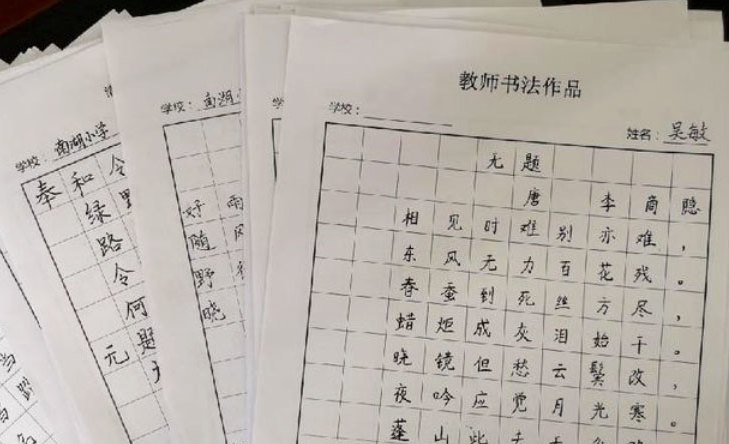 教师书法作品
学校：
姓名：吴敏
无题
唐 李商隐
相见时难别亦难，
东风无力百花残。
春蚕到死丝方尽，
蜡炬成灰泪始干。
晓镜但愁云鬓改，
夜吟应觉月光寒。
蓬山此去
学校：南湖
好雨
随风
野
晓
学校：南湖小学
奉和令
绿野
路
令何
题
元